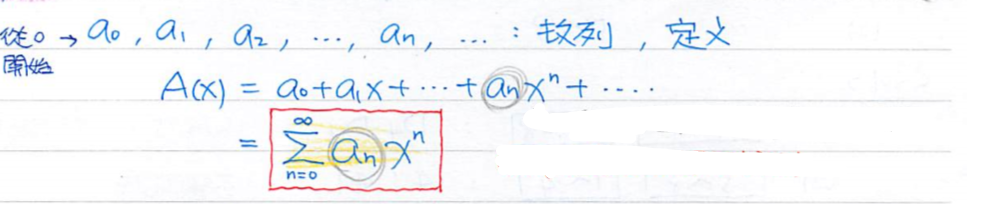 從0開始 → a₀, a₁, a₂, ..., aₙ, ... : 数列, 定义
A(x) = a₀+a₁x+⋯+aₙxⁿ+⋯⋅
= ∑_{n=0}^{∞} aₙxⁿ